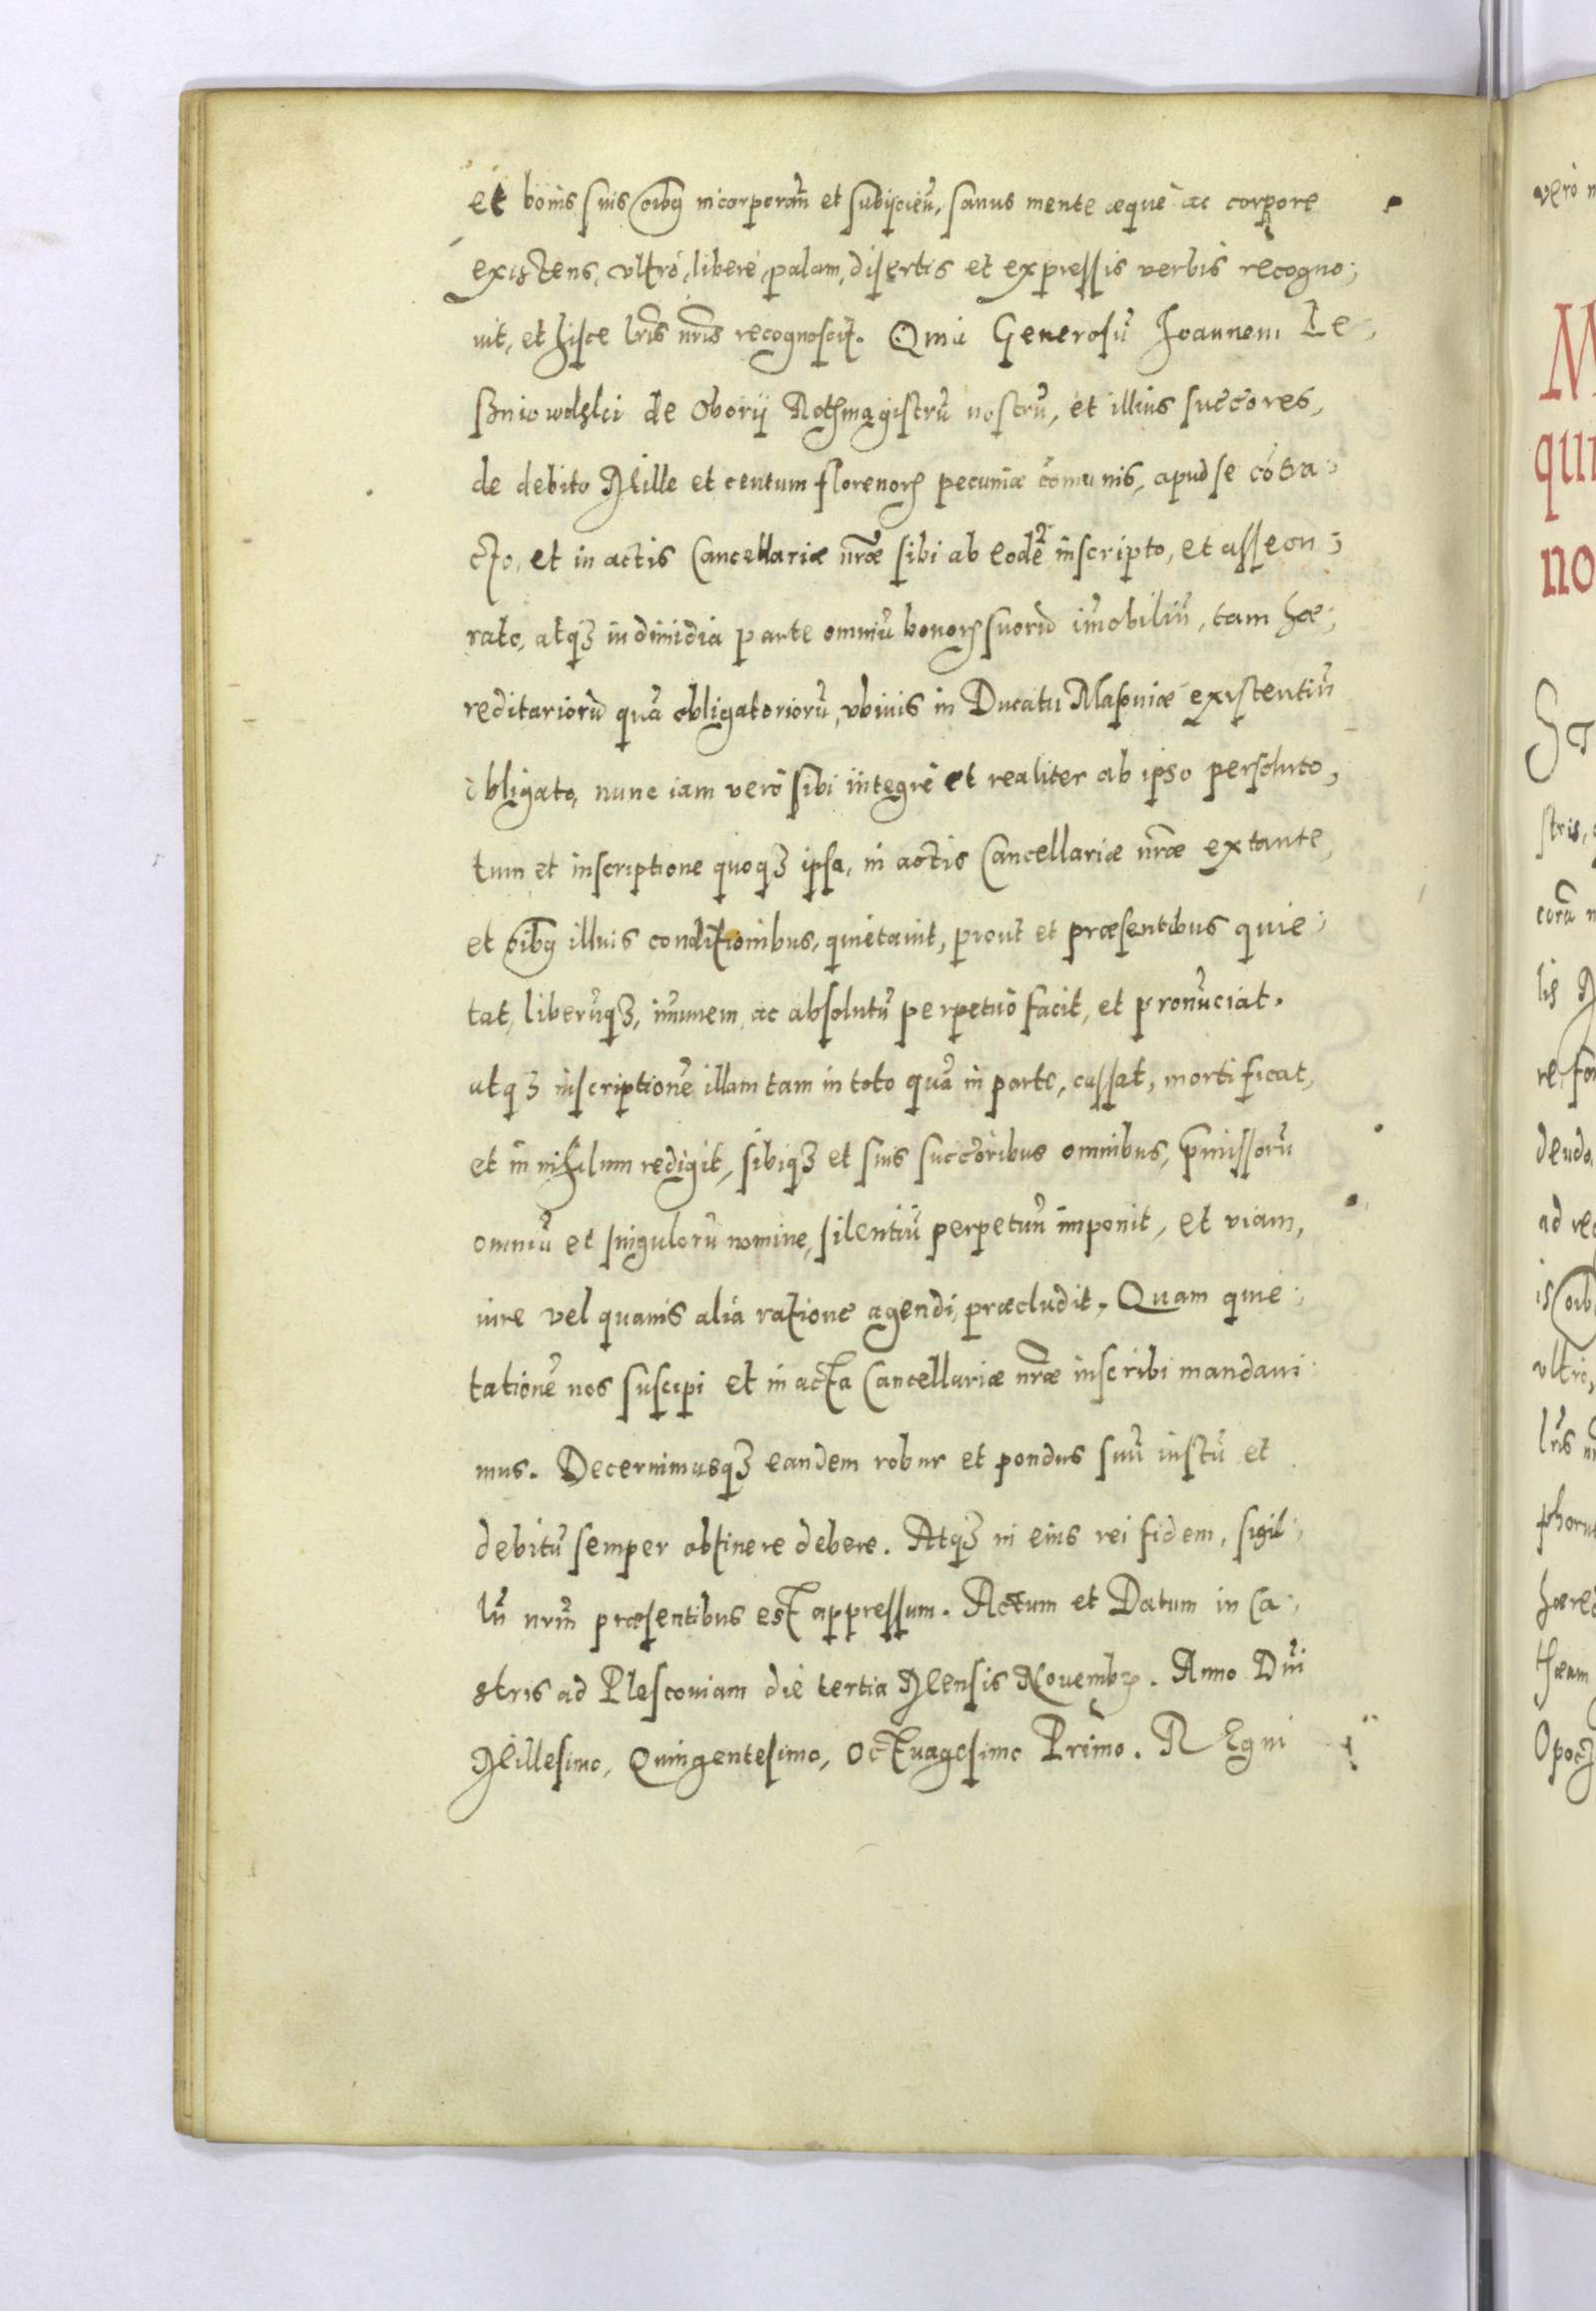 et bonis suis oībꝰ incorporan̄ et subijcien̄, sanus mente æquè ac corpore
existens, vltrò, liberè, palam, disertis et expressis verbis recogno:
uit, et hisce l̄ris n̄ris recognoscit. Quia Generosū Joannem Le:
sznio wolski de Oborij Rothmagistrū nostrū, et illius succ̄ores,
de debito Mille et centum florenorꝝ pecuniæ com̄unis, apud se cōtra:
cto, et in actis Cancellariæ n̄ræ sibi ab eodē inscripto, et asseon:
rato, atqꝫ in dimidia parte omniū bonorꝝ suorū im̄obiliū, tam hæ:
reditariorū quā obligatoriorū, vbiuis in Ducatu Masouiæ existentiū
obligato, nunc iam verò sibi integrè et realiter ab ipso persoluto,
tum et inscriptione quoqꝫ ipsa, in actis Cancellariæ n̄ræ extante,
et oībꝰ illius conditionibus, quietauit, prout et præsentibus quie:
tat, liberūqꝫ, im̄unem, ac absolutū perpetuò facit, et pronūciat.
atqꝫ inscriptionē illam tam in toto quā in parte, cassat, mortificat,
et in nihilum redigit, sibiqꝫ et suis succ̄oribus omnibus, p̄missorū
omniū et singulorū nomine, silentiū perpetuū imponit, et viam,
iure vel quauis alia ratione agendi, præcludit. Quam quie:
tationē nos suscipi et in acta Cancellariæ n̄ræ inscribi mandaui:
mus. Decernimusqꝫ eandem robur et pondus suū iustū et
debitū semper obtinere debere. Atqꝫ in eius rei fidem, sigil:
lū n̄rm̄ præsentibus est appressum. Actum et Datum in Ca:
stris ad Plescouiam die tertia Mensis Nouembꝝ. Anno Dn̄i
Millesimo, Quingentesimo, Octuagesimo Primo. REgni